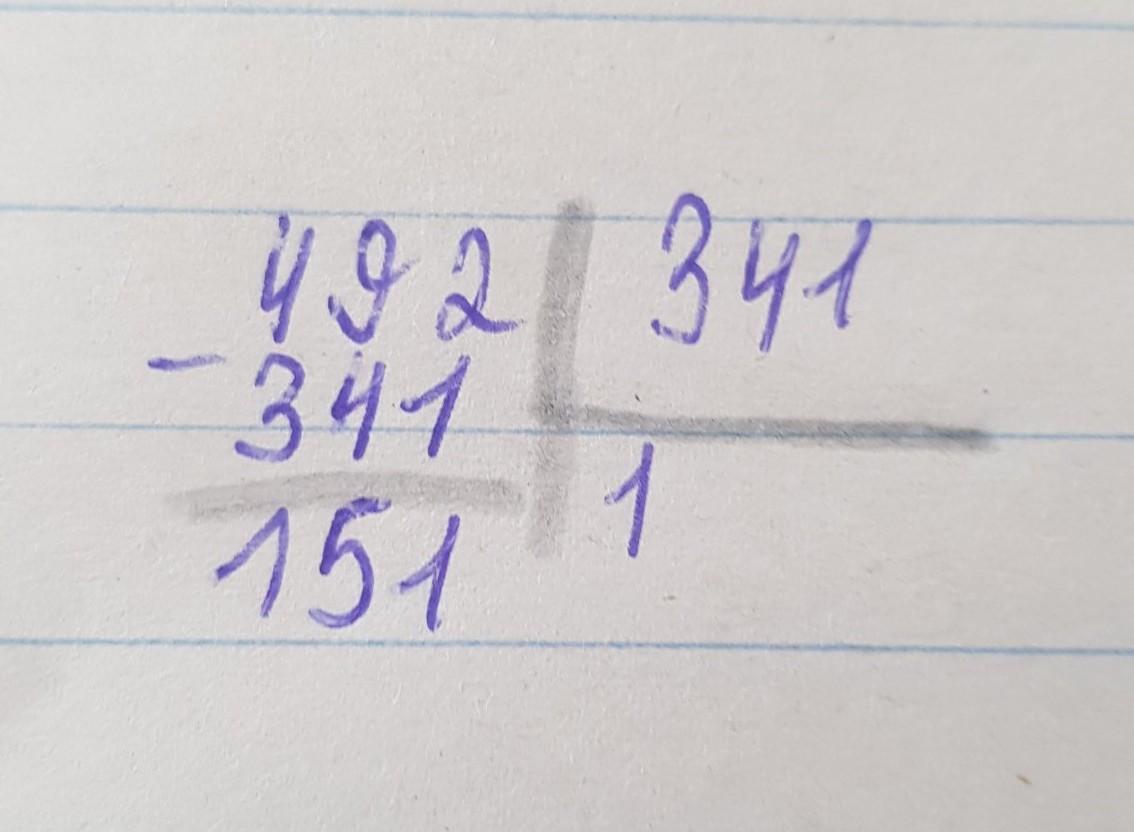 492 341
- 341
1
151